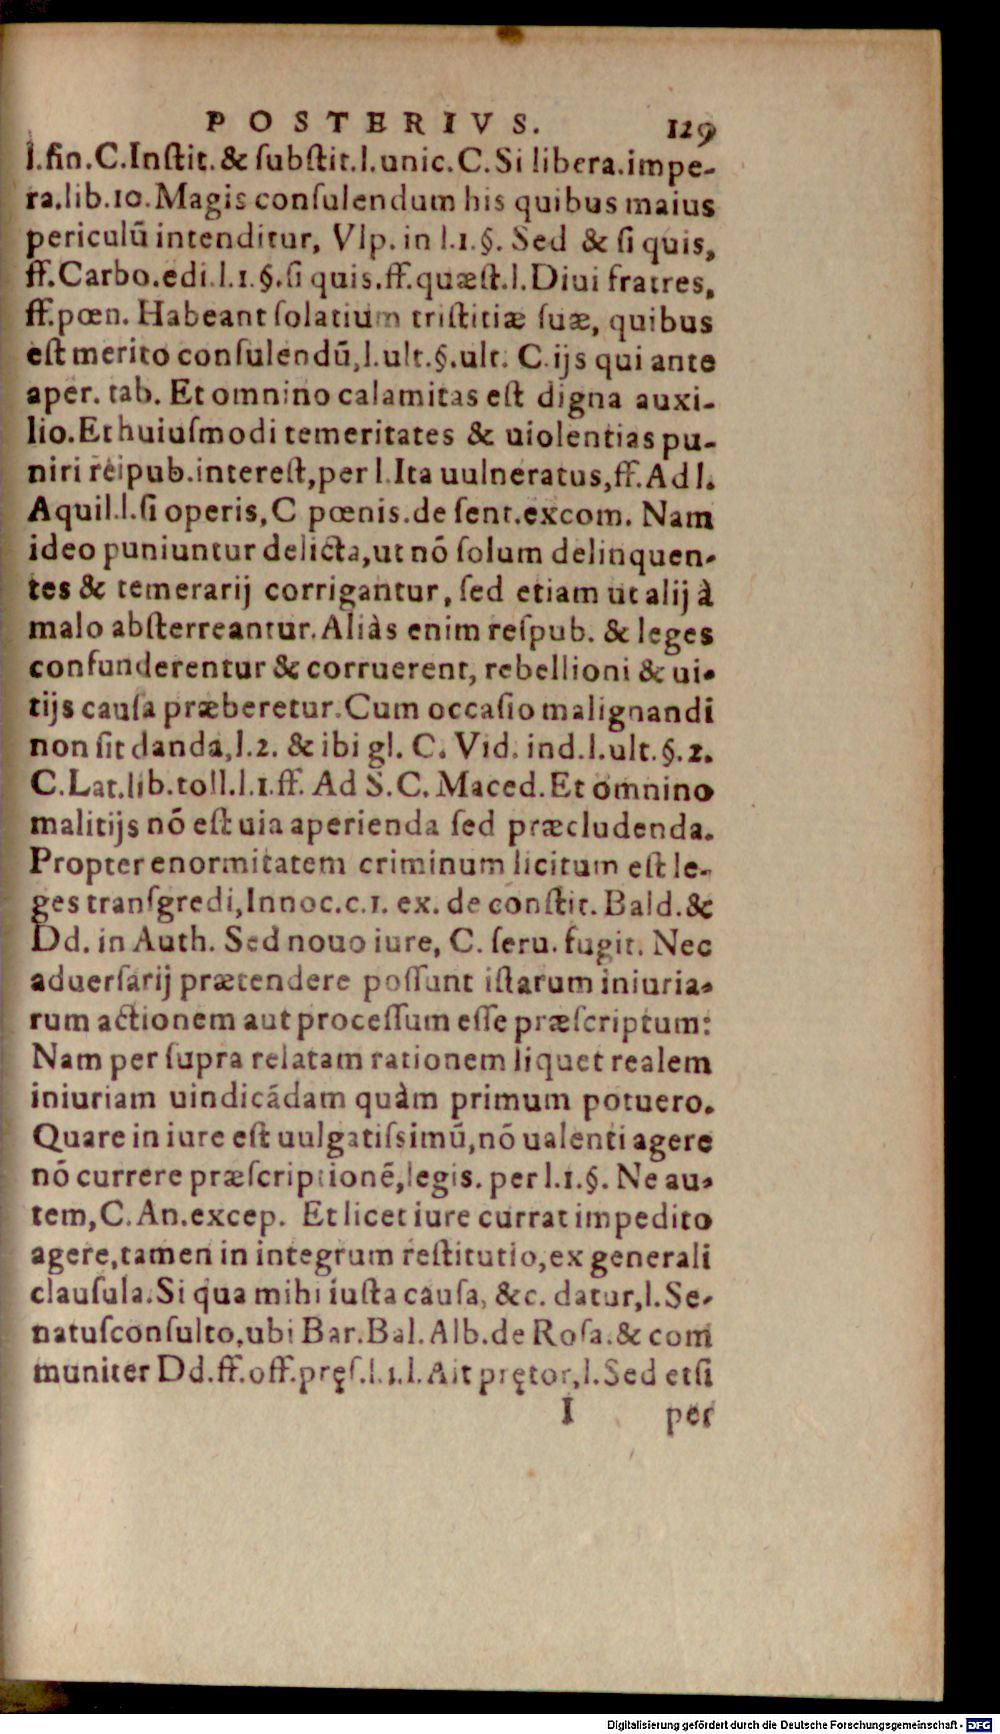 POSTERIVS. 129
l.fin.C.Inſtit.& ſubſtit.l.unic.C.Si libera.impe-
ra.lib.10.Magis conſulendum his quibus maius
periculũ intenditur, Vlp. in l.1.§. Sed & ſi quis,
ff.Carbo.edi.l.1.§.ſi quis.ff.quæſt.l.Diui fratres,
ff.pœn. Habeant ſolatium triſtitiæ ſuæ, quibus
eſt merito conſulendũ,l.ult.§.ult. C.ijs qui ante
aper. tab. Et omnino calamitas eſt digna auxi-
lio.Et huiuſmodi temeritates & uiolentias pu-
niri reipub.intereſt,per l.Ita uulneratus,ff.Ad l.
Aquil.l.ſi operis,C pœnis.de ſent.excom. Nam
ideo puniuntur delicta,ut nõ ſolum delinquen-
tes & temerarij corrigantur, ſed etiam ut alij à
malo abſterreantur.Aliàs enim reſpub. & leges
confunderentur & corruerent, rebellioni & ui-
tijs cauſa præberetur.Cum occaſio malignandi
non ſit danda,l.2. & ibi gl. C. Vid. ind.l.ult.§.2.
C.Lat.lib.toll.l.1.ff. Ad S.C. Maced.Et omnino
malitijs nõ eſt uia aperienda ſed præcludenda.
Propter enormitatem criminum licitum eſt le-
ges tranſgredi,Innoc.c.1. ex. de conſtit. Bald.&
Dd. in Auth. Sed nouo iure, C. ſeru. fugit. Nec
aduerſarij prætendere poſſunt iſtarum iniuria-
rum actionem aut proceſſum eſſe præſcriptum:
Nam per ſupra relatam rationem liquet realem
iniuriam uindicãdam quàm primum potuero.
Quare in iure eſt uulgatiſsimũ,nõ ualenti agere
nõ currere præſcriptionẽ,legis. per l.1.§. Ne au-
tem,C.An.excep. Et licet iure currat impedito
agere,tamen in integrum reſtitutio,ex generali
clauſula.Si qua mihi iuſta cauſa, &c. datur,l.Se-
natuſconſulto,ubi Bar.Bal.Alb.de Roſa.& com
muniter Dd.ff.off.pręſ.l.1.l.Ait prętor,l.Sed etſi
I per
Digitalisierung gefördert durch die Deutsche Forschungsgemeinschaft - DFG